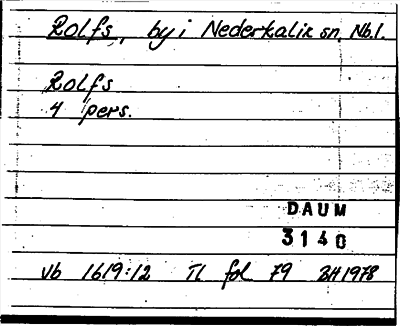 Rolfs, by i Nederkalix sn, Nb.l.
Rolfs
4 pers.
DAUM
3140
Vb 1619:12 Tl fol 79 BH 1978